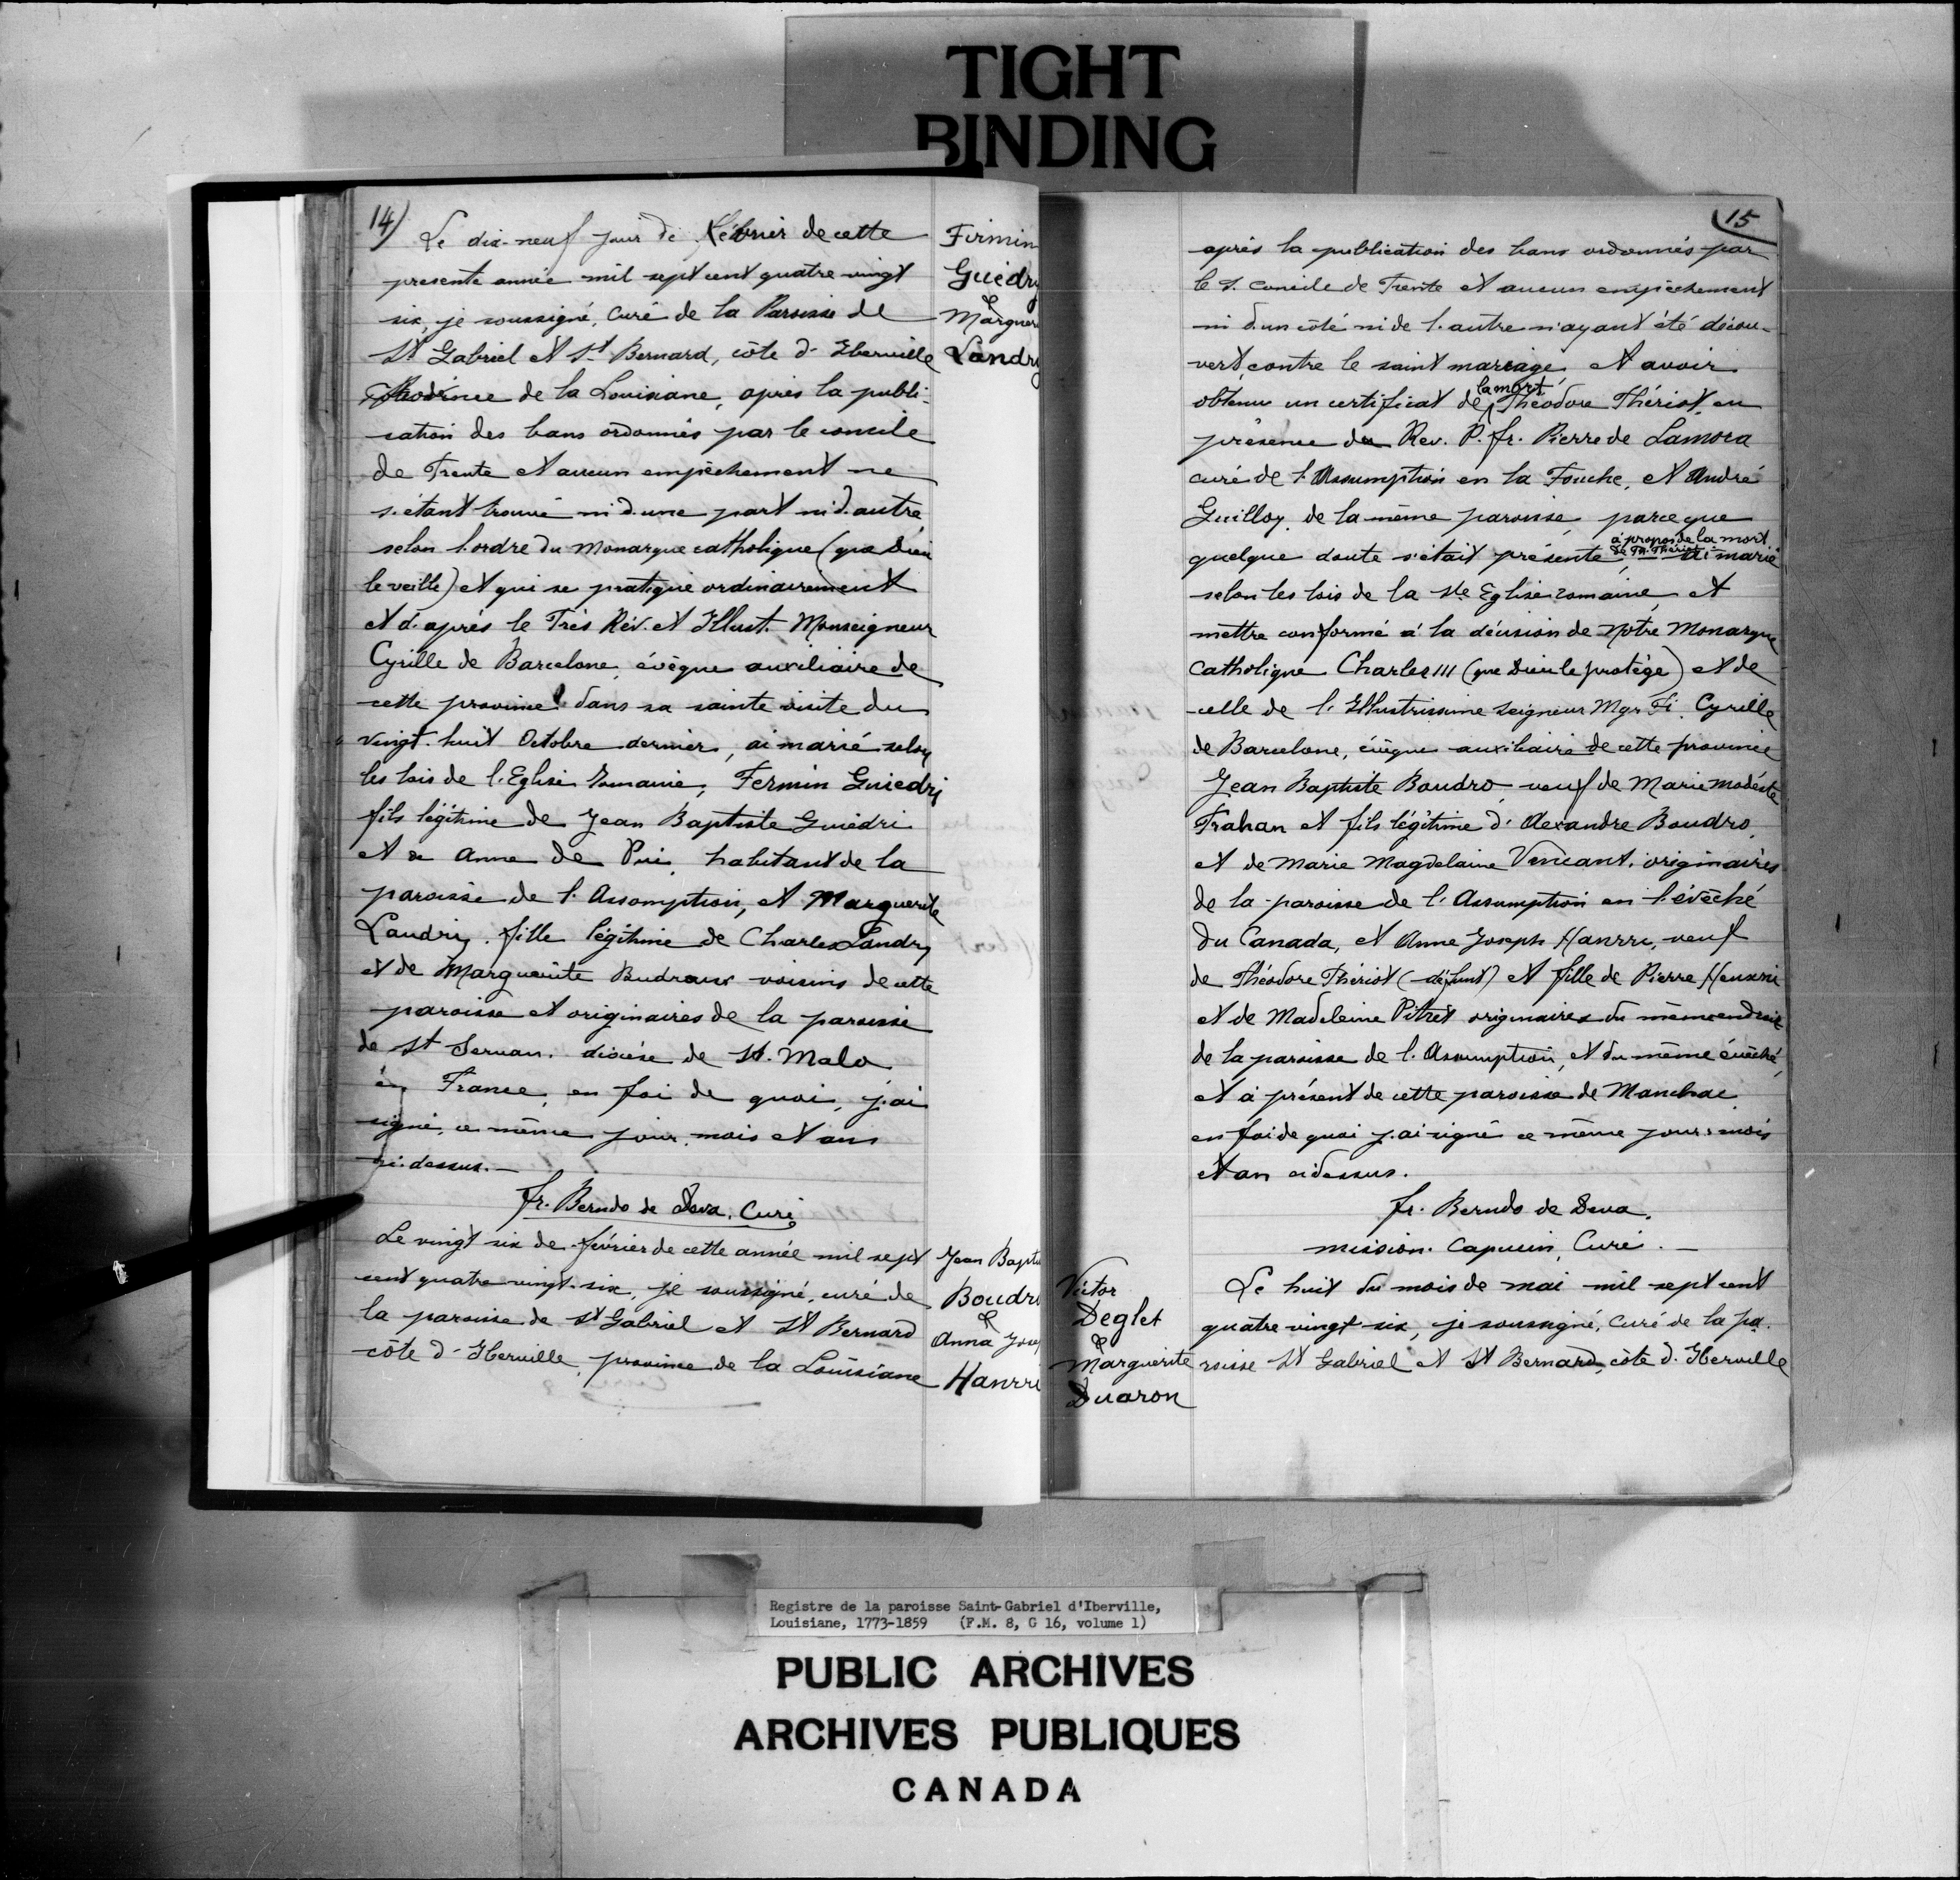 TIGHT
BINDING
14)
Le dix-neuf jour de février de cette
presente année mil sept cent quatre vingt
six, je soussigné, Curé de la Paroisse de
St Gabriel et St Bernard, côte d'Iberville
Province de la Louisiane, après la publi-
cation des bans ordonnés par le concile
de Trente et aucun empêchement ne
s'étant trouvé ni d'une part ni d'autre
selon l'ordre du Monarque catholique (que Dieu
le veille) et qui se pratique ordinairement
et d'après le Très Rév. et Illust. Monseigneur
Cyrille de Barcelone, évêque auxiliaire de
cette province dans sa sainte visite du
vingt-huit Octobre dernier, ai marié selon
les lois de l'Eglise romaine, Fermin Guiedri
fils légitime de Jean Baptiste Guiédri
et de Anne de Pui, habitant de la
paroisse de l'Assomption, et Marguerite
Landry, fille légitime de Charles Landry
et de Marguerite Budraux voisins de cette
paroisse et originaires de la paroisse
de St Servan, diocèse de St. Malo
en France, en foi de quoi, j'ai
signé, ce même jour, mois et an
ci-dessus.—
fr. Berndo de Deva, Curé
Firmin
Guédry
&
Marguer
Landry
Le vingt six de février de cette année mil sept
cent quatre vingt-six, je soussigné, curé de
la paroisse de St Gabriel et St Bernard
côte d'Iberville, province de la Louisiane
Jean Baptis
Boudro
&
Anna Josep
Hanrri
15
après la publication des bans ordonnés par
le S. Concile de Trente et aucun empêchement
ni d'un côté ni de l'autre n'ayant été décou-
vert, contre le saint mariage, et avoir
obtenu un certificat de la mort Théodore Thériot, en
présence du Rev. P. fr. Pierre de Lamora
curé de l'Assumption en la Fouche, et André
Guilloy, de la même paroisse, parce que
quelque doute s'était présenté, à propos de la mort de Th. Thériot — ai marié
selon les lois de la Ste Eglise romaine, et
mettre conformé à la décision de Notre Monarque
Catholique Charles III (que Dieu le protège) et de
celle de l'Illustrissime Seigneur Mgr Fr. Cyrille
de Barcelone, évêque auxiliaire de cette province
Jean Baptiste Boudro, veuf de Marie Modéste
Trahan et fils légitime d'Alexandre Boudro,
et de Marie Magdelaine Vincant, originaires
de la paroisse de l'Assumption en l'évêché
du Canada, et Anne Joseph Hanrri, veuf
de Théodore Thériot (défunt) et fille de Pierre Heusrri
et de Madeleine Pitret originaires du même endroit
de la paroisse de l'Assumption, et du même évêché,
et à présent de cette paroisse de Manchac
en foi de quoi j'ai signé ce même jour, mois
et an ci dessus.
fr. Berndo de Deva.
mission. Capucin, Curé.—
Victor
Deglet
&
Marguerite
Duaron
Le huit du mois de mai mil sept cent
quatre vingt-six, je soussigné, Curé de la pa-
roisse St Gabriel et St Bernard, côte d'Iberville
Registre de la paroisse Saint-Gabriel d'Iberville,
Louisiane, 1773-1859 (F.M. 8, G 16, volume 1)
PUBLIC ARCHIVES
ARCHIVES PUBLIQUES
CANADA